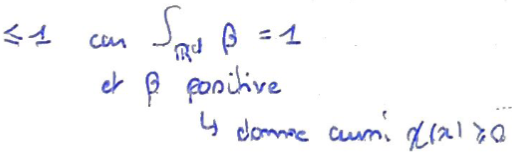 ≤ 1 car ∫_{ℝᵈ} β = 1
et β positive
↳ donne aussi χ(x) ≥ 0